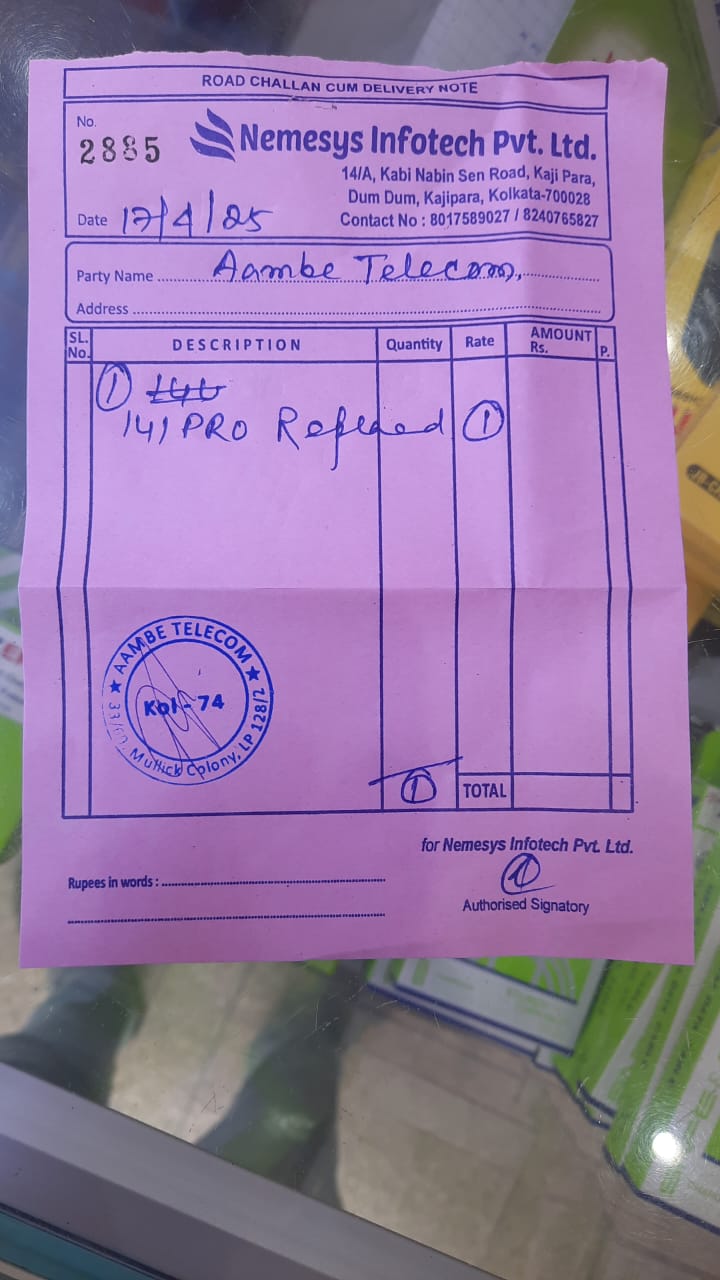 ROAD CHALLAN CUM DELIVERY NOTE
No.
2885
Nemesys Infotech Pvt. Ltd.
14/A, Kabi Nabin Sen Road, Kaji Para,
Dum Dum, Kajipara, Kolkata-700028
Contact No : 8017589027 / 8240765827
Date 17/4/25
Party Name Aambe Telecom,
Address
SL. No. DESCRIPTION Quantity Rate AMOUNT Rs. P.
1
141 PRO 1
AAMBE TELECOM
Kol - 74
Mullick Colony, LP 128/2
1 TOTAL
for Nemesys Infotech Pvt. Ltd.
Rupees in words :
Authorised Signatory